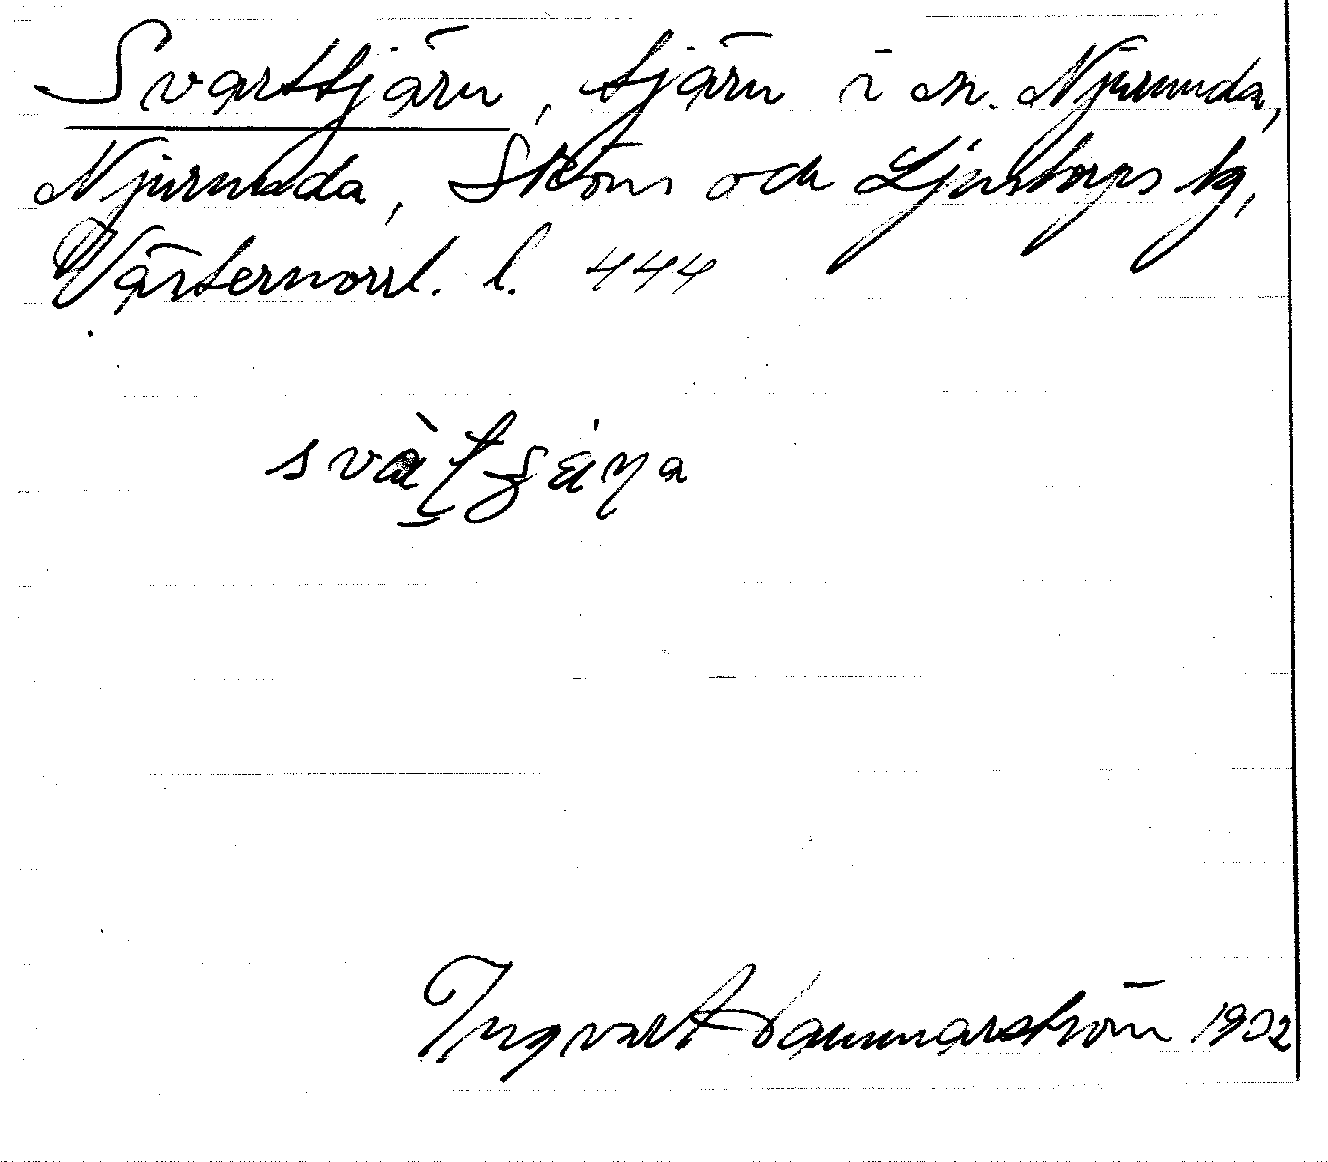 Svarttjärn, tjärn i sn. Njurunda,
Njurunda, Sköns och Ljustorps tg,
Västernorrl. l. 444
Ingvart Hammarström 1932